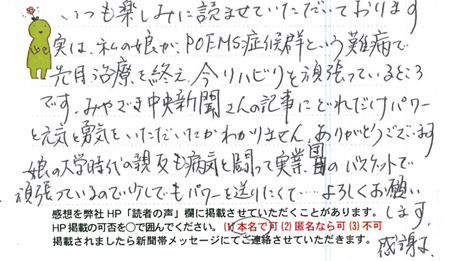 いつも楽しみに読ませていただいております
実は、私の娘が、POEMS症候群という難病で
先月治療を終え、今リハビリを頑張っているところ
です。みやざき中央新聞さんの記事にどれだけパワー
と元気と勇気をいただいたかわかりません。ありがとうございます
娘の大学時代の親友も病気と闘って実業団のバスケットで
頑張っているので少しでもパワーを送りたくて…よろしくお願い
します。
感想を弊社HP「読者の声」欄に掲載させていただくことがあります。
HP掲載の可否を○で囲んでください。(1)本名で可(2)匿名なら可(3)不可
掲載されましたら新聞帯メッセージにてご連絡させていただきます。